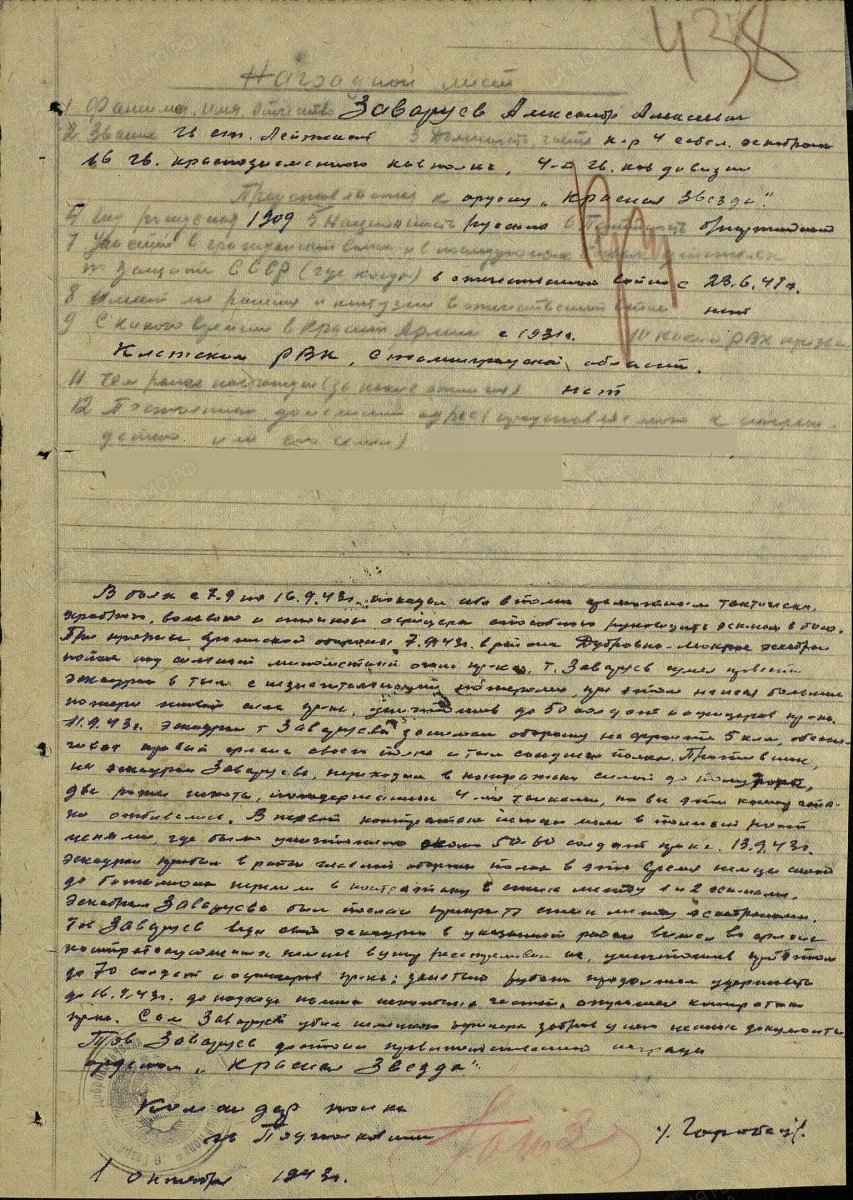 438
Наградной лист
1 Фамилия, имя, отчество Заваруев Александр Алексеевич
2 Звание Гв ст. Лейтенант 3 Должность, часть к-р 4 сабел. эскадрона
16 гв. краснознаменного кавполка, 4-й гв. кав дивизии
Представляется к ордену „Красная Звезда".
4 Год рождения 1909 5 Национальность русский 6 Партийность
7 Участие в гражданской войне и в последующих боевых действиях
по защите СССР (где когда) в отечественной войне с 23.6.41 г.
8 Имеет ли ранения и контузии в отечественной войне нет
9 С какого времени в Красной Армии с 1931 г. 10 Каким РВК призван
Клетским РВК, Сталинградской области.
11 Чем ранее награжден (за какие отличия) нет
12 Постоянный домашний адрес представляемого к награж-
дению или его семьи
В боях с 7.9 по 16.9.43 г. показал себя вполне грамотным тактически,
храброго, волевого и офицера способного руководить эск-ном в бою.
При прорыве вражеской обороны 7.9.43 г. в районе Дубровка - Мокрое эскадрон
под сильный минометный огонь пр-ка, т. Заваруев сумел провести
эскадрон в тыл с незначительными потерями, при этом нанеся большие
потери живой силе пр-ка, уничтожив до 50 солдат и офицеров пр-ка.
11.9.43 г. эскадрон т Заваруева занимал оборону на фронте 5 клм, обеспе-
чивая правый фланг своего полка и тыл соседнего полка. Противник,
на эскадрон Заваруева, переходил в контратаки силой до полутора,
два роты пехоты, поддержанной 4-мя танками, но все эти контратаки
отбивались. В первой контратаке немцы шли в полный рост
где было уничтожено около 50-60 солдат пр-ка. 13.9.43 г.
эскадрон прибыл в район главной обороны полка в это время немцы силой
до батальона перешли в контратаку в стыке между 1 и 2 эск-нами.
Эскадрон Заваруева был послан прикрыть стык между эскадронами.
Тов Заваруев ведя свой эскадрон в указанный район вышел во фланг
контратакующих немцев в упор расстреливал их, уничтожив при этом
до 70 солдат и офицеров пр-ка; рубеж продолжал удерживать
до 16.9.43 г. до подхода наших частей, отражая контратаки
пр-ка. Сам Заваруев убил немецкого офицера забрав у него ценные документы
Тов Заваруев достоин правительственной награды
орденом „Красная Звезда"
Командир полка
гв Подполковник /Горобец/.
1 Октября 1943 г.